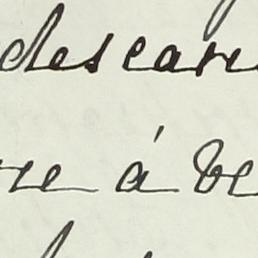 descare
re á be